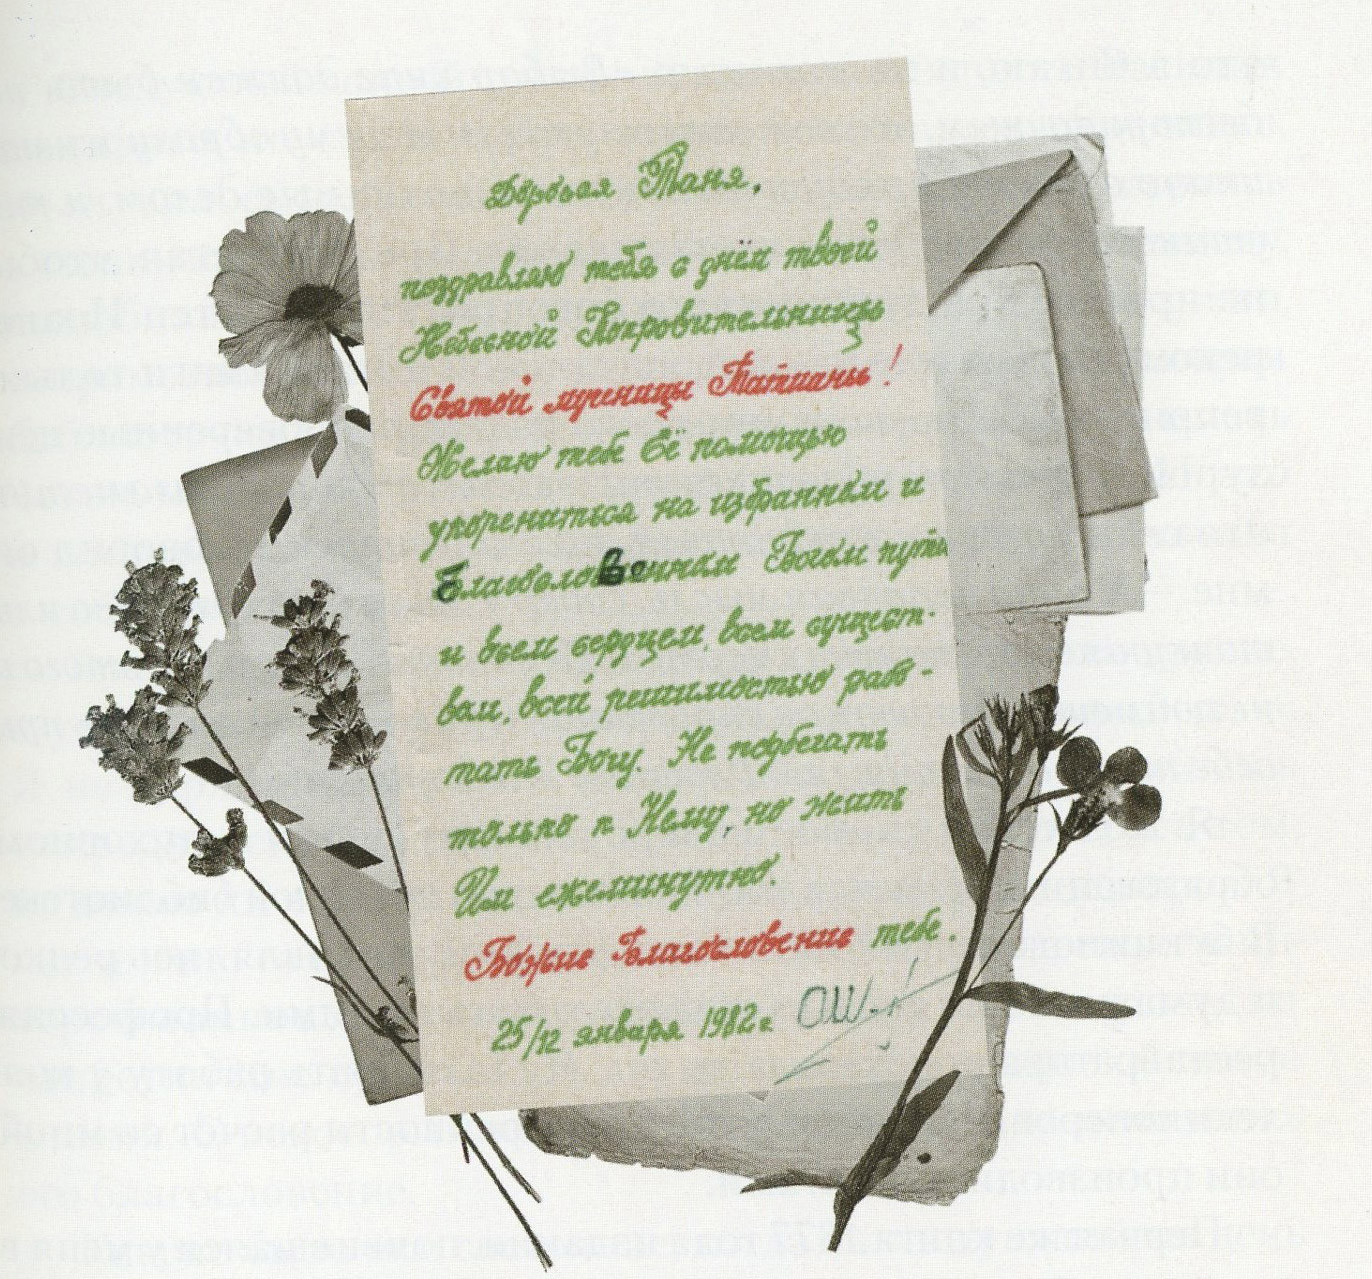 Дорогая Таня,
поздравляю тебя с днём твоей
Небесной Покровительницы
Святой мученицы Татианы!
Желаю тебе Её помощью
укорениться на избранном и
Благословенном Богом пути
и всем сердцем, всем сущест-
вом, всей решимостью рабо-
тать Богу. Не прибегать
только к Нему, но жить
Им ежеминутно.
Божие Благословение тебе.
25/12 января 1982 г. О.Ш.